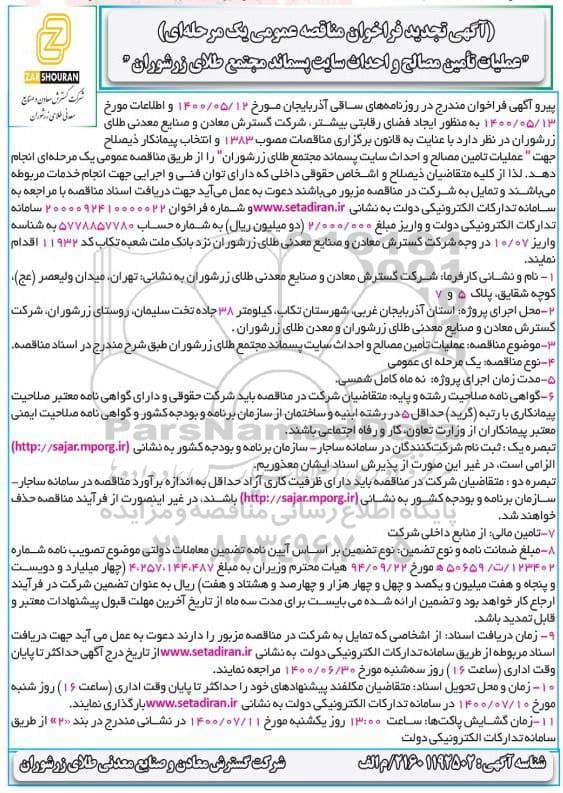 (آگهی تجدید فراخوان مناقصه عمومی یک مرحله‌ای)
"عملیات تأمین مصالح و احداث سایت پسماند مجتمع طلای زرشوران"
ZAR SHOURAN
شرکت گسترش معادن و صنایع
معدنی طلای زرشوران
پیرو آگهی فراخوان مندرج در روزنامه‌های ساقی آذربایجان مورخ ۱۴۰۰/۰۵/۱۲ و اطلاعات مورخ
۱۴۰۰/۰۵/۱۳ به منظور ایجاد فضای رقابتی بیشتر، شرکت گسترش معادن و صنایع معدنی طلای
زرشوران در نظر دارد با عنایت به قانون برگزاری مناقصات مصوب ۱۳۸۳ و انتخاب پیمانکار ذیصلاح
جهت " عملیات تامین مصالح و احداث سایت پسماند مجتمع طلای زرشوران" را از طریق مناقصه عمومی یک مرحله‌ای انجام
دهد. لذا از کلیه متقاضیان ذیصلاح و اشخاص حقوقی داخلی که دارای توان فنی و اجرایی جهت انجام خدمات مربوطه
می‌باشند و تمایل به شرکت در مناقصه مزبور می‌باشند دعوت به عمل می‌آید جهت دریافت اسناد مناقصه با مراجعه به
سامانه تدارکات الکترونیکی دولت به نشانی www.setadiran.ir و شماره فراخوان ۲۰۰۰۰۹۲۴۱۰۰۰۰۰۲۲ سامانه
تدارکات الکترونیکی دولت و واریز مبلغ ۲/۰۰۰/۰۰۰ (دو میلیون ریال) به شماره حساب ۵۷۷۸۸۵۷۷۸۰ به شناسه
واریز ۱۰/۰۷ در وجه شرکت گسترش معادن و صنایع معدنی طلای زرشوران نزد بانک ملت شعبه تکاب کد ۱۱۹۳۲ اقدام
نمایند.
۱- نام و نشانی کارفرما: شرکت گسترش معادن و صنایع معدنی طلای زرشوران به نشانی: تهران، میدان ولیعصر (عج)،
کوچه شقایق، پلاک ۵ و ۷
۲-محل اجرای پروژه: استان آذربایجان غربی، شهرستان تکاب، کیلومتر ۳۸ جاده تخت سلیمان، روستای زرشوران، شرکت
گسترش معادن و صنایع معدنی طلای زرشوران و معدن طلای زرشوران .
۳-موضوع مناقصه: عملیات تأمین مصالح و احداث سایت پسماند مجتمع طلای زرشوران طبق شرح مندرج در اسناد مناقصه.
۴-نوع مناقصه: یک مرحله ای عمومی
۵-مدت زمان اجرای پروژه: نه ماه کامل شمسی.
۶-گواهی نامه صلاحیت رشته و پایه: متقاضیان شرکت در مناقصه باید شرکت حقوقی و دارای گواهی نامه معتبر صلاحیت
پیمانکاری با رتبه (گرید) حداقل ۵ در رشته ابنیه و ساختمان از سازمان برنامه و بودجه کشور و گواهی نامه صلاحیت ایمنی
معتبر پیمانکاران از وزارت تعاون، کار و رفاه اجتماعی باشند.
تبصره یک : ثبت نام شرکت‌کنندگان در سامانه ساجار- سازمان برنامه و بودجه کشور به نشانی (http://sajar.mporg.ir)
الزامی است، در غیر این صورت از پذیرش اسناد ایشان معذوریم.
تبصره دو : متقاضیان شرکت در مناقصه باید دارای ظرفیت کاری آزاد حداقل به اندازه برآورد مناقصه در سامانه ساجار-
سازمان برنامه و بودجه کشور به نشانی (http://sajar.mporg.ir) باشند، در غیر اینصورت از فرآیند مناقصه حذف
خواهند شد.
۷-تامین مالی: از منابع داخلی شرکت
۸-مبلغ ضمانت نامه و نوع تضمین: نوع تضمین بر اساس آیین نامه تضمین معاملات دولتی موضوع تصویب نامه شماره
۱۲۳۴۰۲/ت/ ۵۰۶۵۹ ه مورخ ۹۴/۰۹/۲۲ هیات محترم وزیران به مبلغ ۴.۲۵۷,۱۴۴,۴۸۷ (چهار میلیارد و دویست
و پنجاه و هفت میلیون و یکصد و چهل و چهار هزار و چهارصد و هشتاد و هفت) ریال به عنوان تضمین شرکت در فرآیند
ارجاع کار خواهد بود و تضمین ارائه شده می بایست برای مدت سه ماه از تاریخ آخرین مهلت قبول پیشنهادات معتبر و
قابل تمدید باشد.
۹- زمان دریافت اسناد: از اشخاصی که تمایل به شرکت در مناقصه مزبور را دارند دعوت به عمل می آید جهت دریافت
اسناد مربوطه از طریق سامانه تدارکات الکترونیکی دولت به نشانی www.setadiran.ir از تاریخ درج آگهی حداکثر تا پایان
وقت اداری (ساعت ۱۶) روز سه‌شنبه مورخ ۱۴۰۰/۰۶/۳۰ مراجعه نمایند.
۱۰- زمان و محل تحویل اسناد: متقاضیان مکلفند پیشنهادهای خود را حداکثر تا پایان وقت اداری (ساعت ۱۶) روز شنبه
مورخ ۱۴۰۰/۰۷/۱۰ در سامانه تدارکات الکترونیکی دولت به نشانی www.setadiran.ir بارگذاری نمایند.
۱۱-زمان گشایش پاکت‌ها: ساعت ۱۳:۰۰ روز یکشنبه مورخ ۱۴۰۰/۰۷/۱۱ در نشانی مندرج در بند «۲» از طریق
سامانه تدارکات الکترونیکی دولت
شناسه آگهی: ۱۱۹۲۵۰۲ ۲۱۶۰/م الف
شرکت گسترش معادن و صنایع معدنی طلای زرشوران